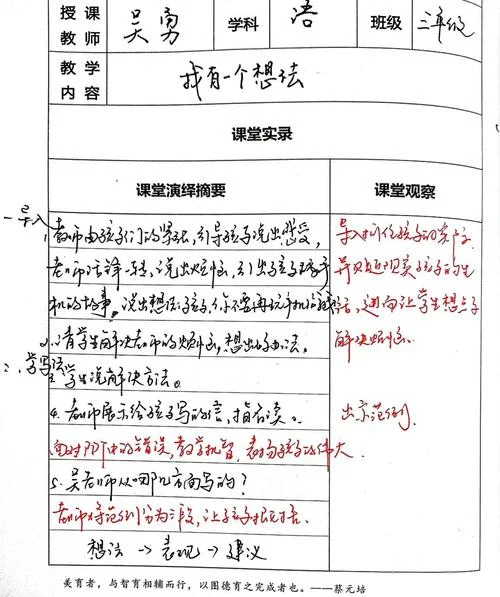 授课教师 吴勇 学科 语 班级 三年级
教学内容 我有一个想法
课堂实录
课堂演绎摘要 课堂观察
一导入
1、教师由孩子们的紧张,引导孩子说出感受,
老师话锋一转,说出烦恼,引出孩子玩手
机的故事。说出想法:孩子,你不要再玩手机
2、请学生解决老师的烦恼,想出好办法。
二、学写法
3、学生说解决方法。
4、老师展示给孩子写的信,指名读。
面对PPT中的错误,教学机智,表扬孩子的伟大
5、吴老师从哪几方面写的?
老师将范例分为三段,让孩子概括。
想法→表现→建议
导入抓住孩子的
并贴近现实孩子的生
活,进而让学生想点子
解决烦恼。
出示范例。
美育者,与智育相辅而行,以图德育之完成者也。——蔡元培